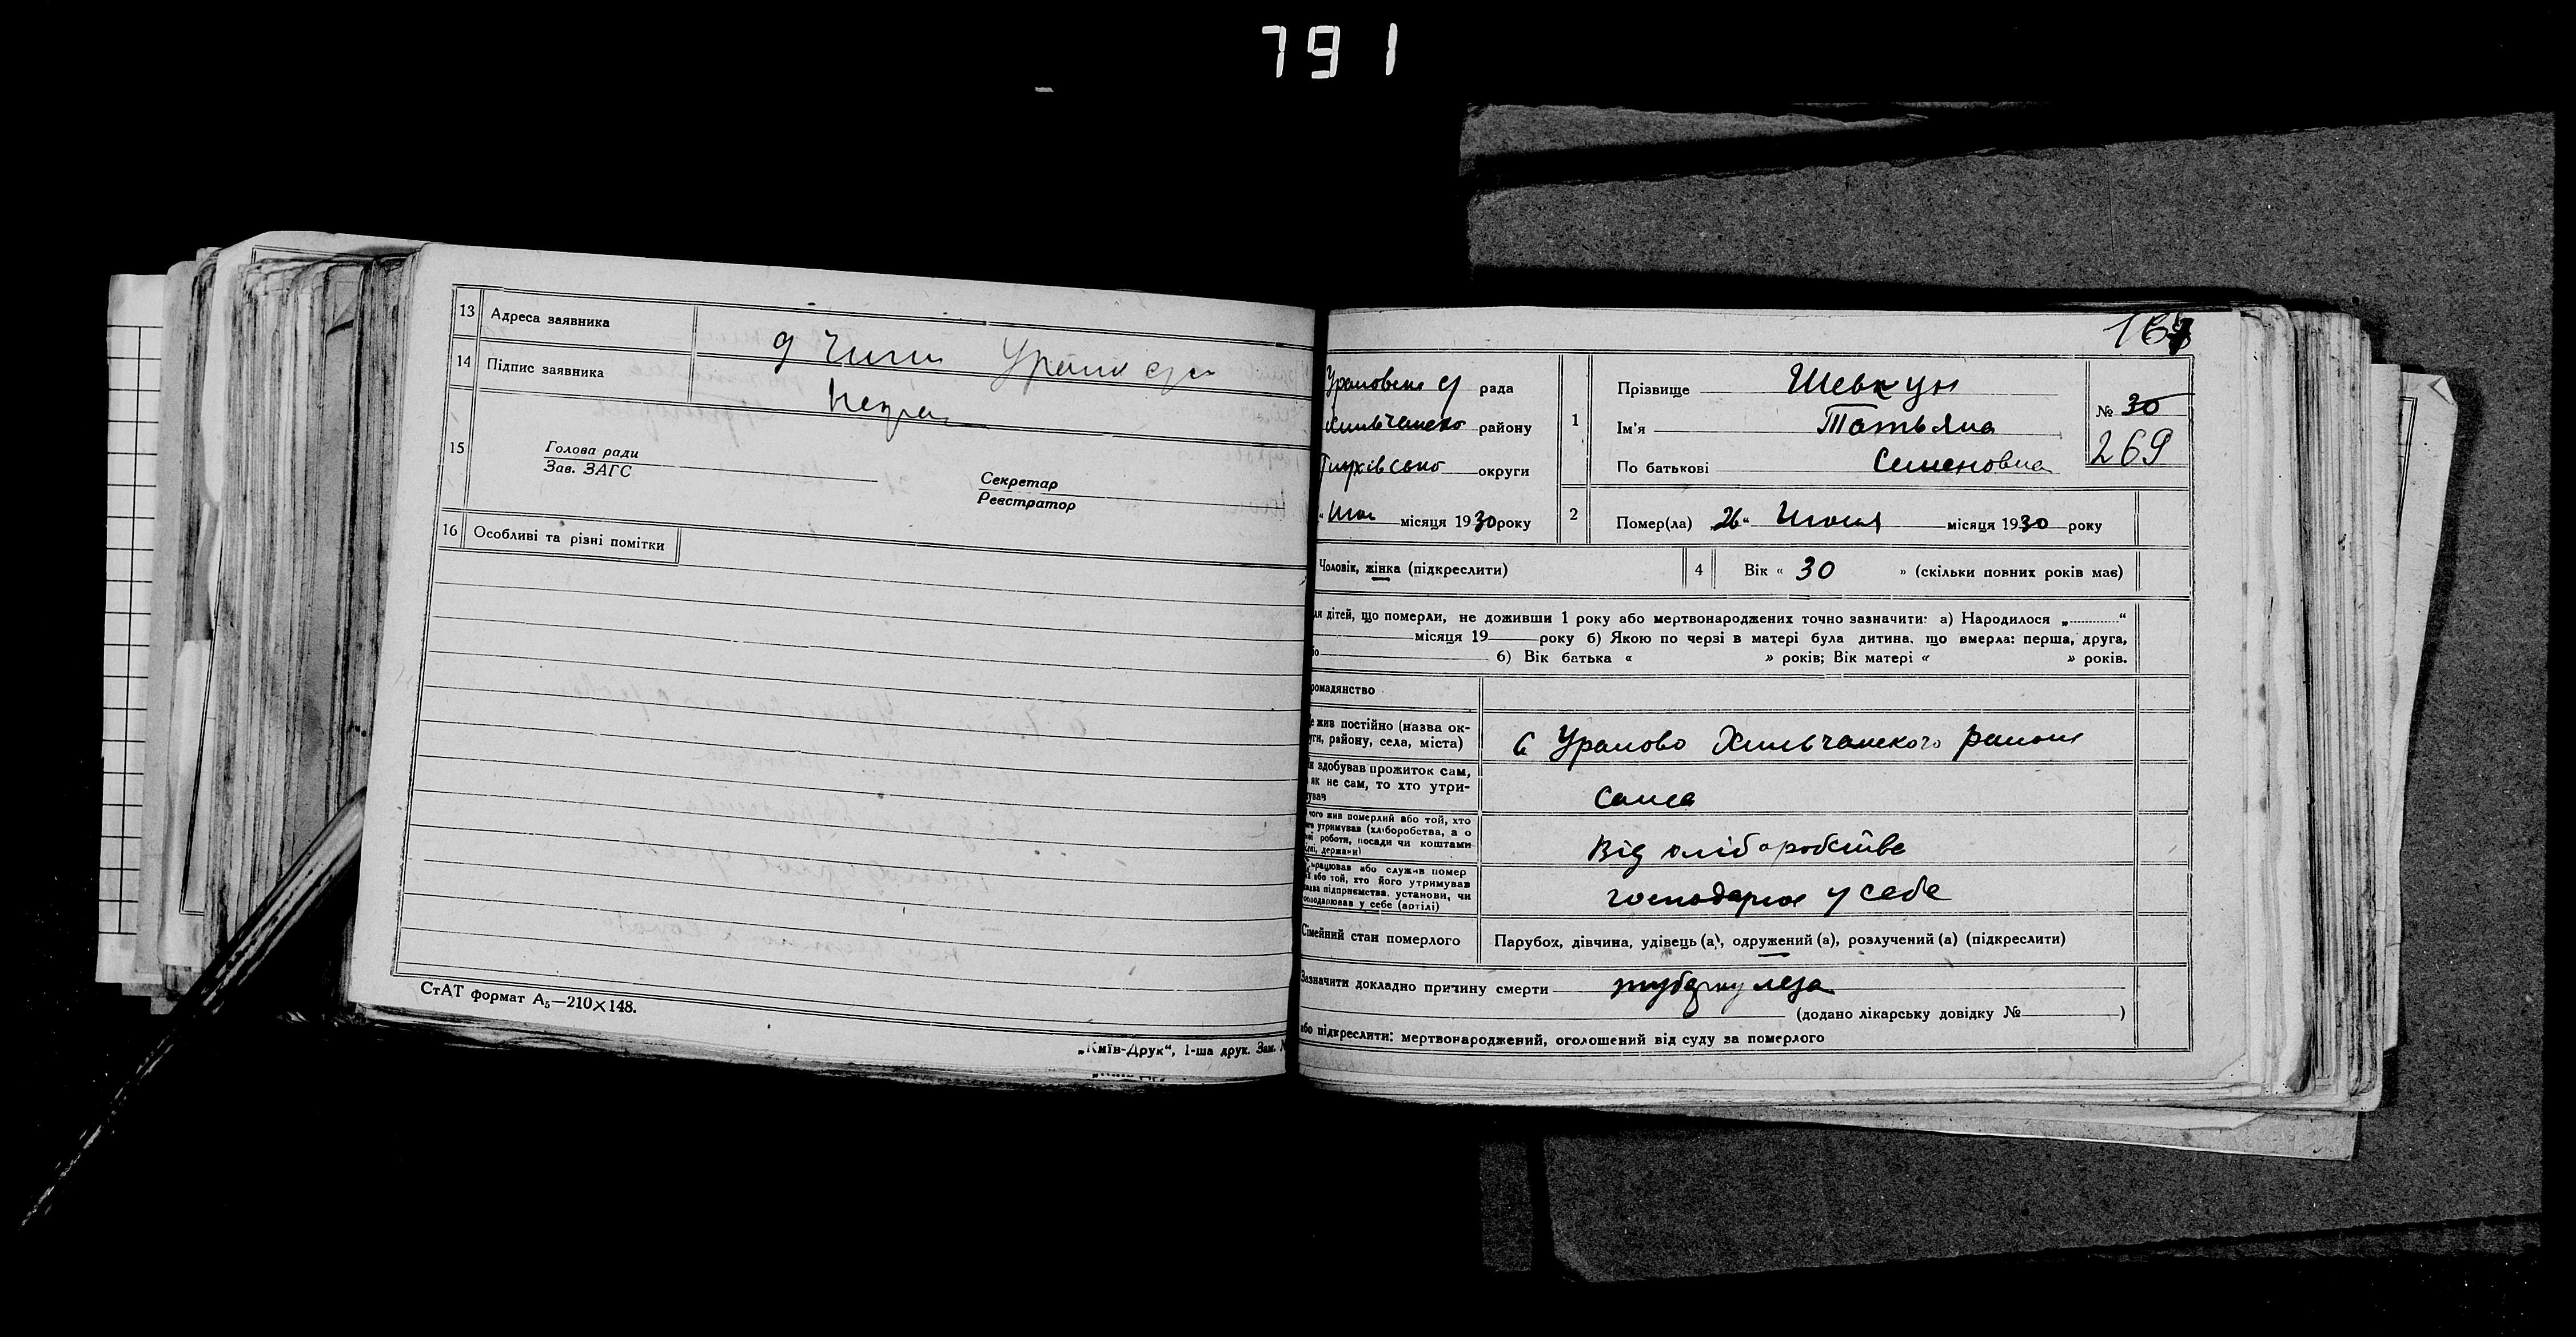 791
13 Адреса заявника
14 Підпис заявника
15
Голова ради
Зав. ЗАГС
Секретар
Реєстратор
16 Особливі та різні помітки
СтАТ формат А5—210×148.
„Київ-Друк“, 1-ша друк. Зам. №
рада
району
округи
місяця 1930 року
1
Прізвище Шевкун
Ім'я Татьяна
По батькові Семеновна
№ 30
269
2 Помер(ла) „26“ Июня місяця 1930 року
Чоловік, жінка (підкреслити)
4 Вік « 30 » (скільки повних років має)
дітей, що померли, не доживши 1 року або мертвонароджених точно зазначити: а) Народилося „ “
місяця 19 року б) Якою по черзі в матері була дитина, що вмерла: перша, друга,
б) Вік батька « » років; Вік матері « » років.
ромадянство
жив постійно (назва ок-
уги, району, села, міста)
с Уралово Хильчанского района
здобував прожиток сам,
як не сам, то хто утри-
сама
чого жив померлий або той, хто
утримував (хліборобства, а о
роботи, посади чи коштами
держави)
Від хліборобства
працював або служив помер
або той, хто його утримував
підприємства, установи, чи
господарював у себе (артілі)
господарює у себе
Сімейний стан померлого
Парубох, дівчина, удівець (а), одружений (а), розлучений (а) (підкреслити)
Зазначити докладно причину смерти туберкулеза
(додано лікарську довідку № )
або підкреслити: мертвонароджений, оголошений від суду за померлого